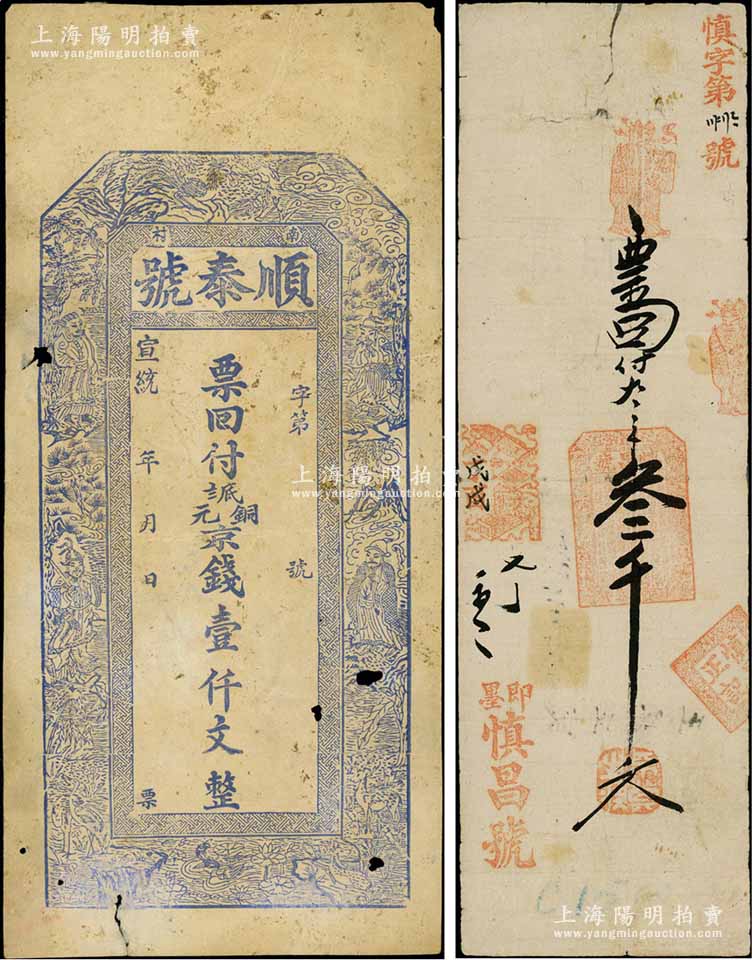 上海陽明拍賣
www.yangmingauction.com
南村
順泰號
字第 號
票回付銅元京錢壹仟文整
宣統 年 月 日 票
上海陽明拍賣
www.yangmingauction.com
上海陽明拍賣
www.yangmingauction.com
慎字第 號
票回付 叁千文
戊戌
慎記
正
即墨
慎昌號
上海陽明拍賣
www.yangmingauction.com